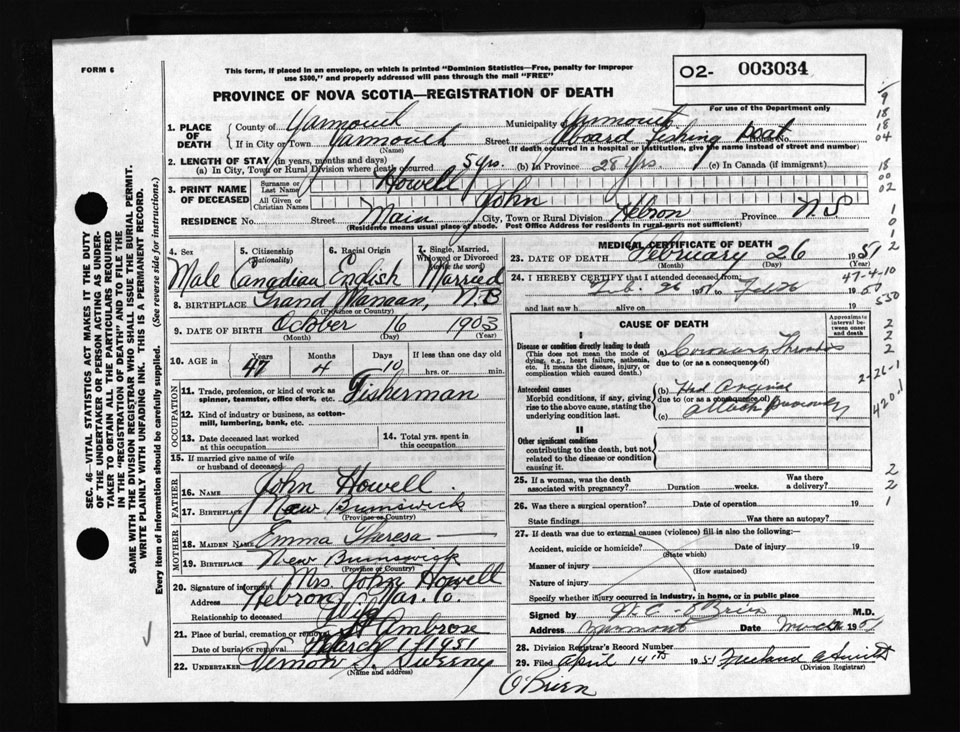 FORM 6
This form, if placed in an envelope, on which is printed "Dominion Statistics—Free, penalty for improper use $300," and properly addressed will pass through the mail "FREE"
02- 003034
PROVINCE OF NOVA SCOTIA—REGISTRATION OF DEATH
For use of the Department only
SEC. 46—VITAL STATISTICS ACT MAKES IT THE DUTY
OF THE UNDERTAKER OR PERSON ACTING AS UNDER-
TAKER TO OBTAIN ALL THE PARTICULARS REQUIRED
IN THE "REGISTRATION OF DEATH" AND TO FILE THE
SAME WITH THE DIVISION REGISTRAR WHO SHALL ISSUE THE BURIAL PERMIT.
WRITE PLAINLY WITH UNFADING INK. THIS IS A PERMANENT RECORD.
Every item of information should be carefully supplied. (See reverse side for instructions.)
1. PLACE OF DEATH
County of Yarmouth Municipality Yarmouth
If in City or Town Yarmouth Street Aboard fishing boat House No.
(Name) (If death occurred in a hospital or institution, give the name instead of street and number)
2. LENGTH OF STAY (in years, months and days)
(a) In City, Town or Rural Division where death occurred 5 yrs. (b) In Province 28 yrs. (c) In Canada (if immigrant)
3. PRINT NAME OF DECEASED
Surname or Last Name Howell
All Given or Christian Names John
RESIDENCE No. Street Main City, Town or Rural Division Hebron Province N.S
(Residence means usual place of abode. Post Office Address for residents in rural parts not sufficient)
4. Sex 5. Citizenship (Nationality) 6. Racial Origin 7. Single, Married, Widowed or Divorced (write the word)
Male Canadian English Married
8. BIRTHPLACE Grand Manaan, N.B
(Province or Country)
9. DATE OF BIRTH October 16 1903
(Month) (Day) (Year)
10. AGE in Years Months Days If less than one day old
47 4 10 hrs. or min.
OCCUPATION
11. Trade, profession, or kind of work as spinner, teamster, office clerk, etc. Fisherman
12. Kind of industry or business, as cotton-mill, lumbering, bank, etc.
13. Date deceased last worked at this occupation 14. Total yrs. spent in this occupation
15. If married give name of wife or husband of deceased
FATHER
16. NAME John Howell
17. BIRTHPLACE New Brunswick
(Province or Country)
MOTHER
18. MAIDEN NAME Emma Theresa —
19. BIRTHPLACE New Brunswick
(Province or Country)
20. Signature of informant Mrs. John Howell
Address Hebron Yar. Co.
Relationship to deceased Wife
21. Place of burial, cremation or removal St Ambrose
Date of burial or removal March 1 1951
22. UNDERTAKER Vernon S. Sweeny
(Name and address)
MEDICAL CERTIFICATE OF DEATH
23. DATE OF DEATH February 26 1951
(Month) (Day)
24. I HEREBY CERTIFY that I attended deceased from:
Feb. 26 19 to Feb 26 19
and last saw h alive on 19
CAUSE OF DEATH
Approximate interval between onset and death
I
Disease or condition directly leading to death
(This does not mean the mode of dying, e.g., heart failure, asthenia, etc. It means the disease, injury, or complication which caused death.)
(a) Coronary Thrombosis
due to (or as a consequence of)
Antecedent causes
Morbid conditions, if any, giving rise to the above cause, stating the underlying condition last.
(b) Had
due to (or as a consequence of)
(c) attack previously
II
Other significant conditions
contributing to the death, but not related to the disease or condition causing it.
25. If a woman, was the death associated with pregnancy? Duration weeks. Was there a delivery?
26. Was there a surgical operation? Date of operation 19
State findings Was there an autopsy?
27. If death was due to external causes (violence) fill in also the following:—
Accident, suicide or homicide? Date of injury 19
(State which)
Manner of injury
(How sustained)
Nature of injury
Specify whether injury occurred in industry, in home, or in public place
Signed by O'Brien M.D.
Address Yarmouth Date March 1951
28. Division Registrar's Record Number
29. Filed April 14th 1951
(Division Registrar)
O'Brien
9
18
18
04
18
00
02
1
0
1
2
47-4-10
550
2
2
2
2-26-1
420.1
2
2
1